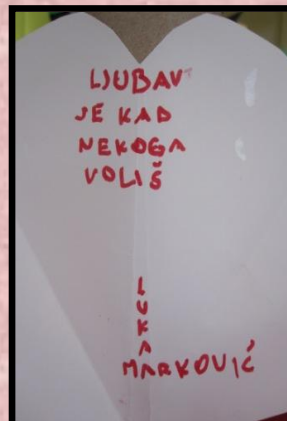 LJUBAV
JE KAD
NEKOGA
VOLIŠ
LUKA
MARKOVIĆ